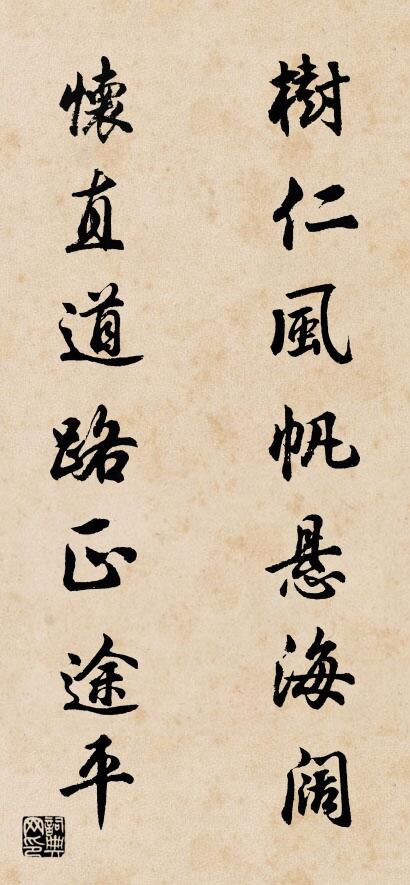 樹仁風帆悬海阔
懷直道路正途平
詞典
网印